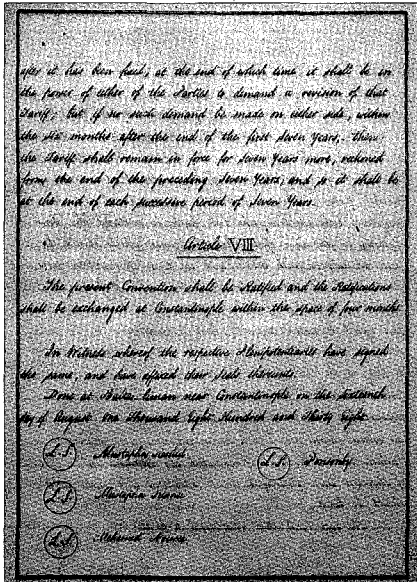 after it has been fixed; at the end of which time it shall be in
the power of either of the Parties to demand a revision of that
Tariff; but if no such demand be made on either side, within
the six months after the end of the first Seven Years,- then;
the Tariff shall remain in force for Seven Years more, reckoned
from the end of the preceding Seven Years; and so it shall be
at the end of each successive period of Seven Years.
Article VIII
The present Convention shall be Ratified and the Ratifications
shall be exchanged at Constantinople within the space of four months
In Witness whereof the respective Plenipotentiaries have signed
the same, and have affixed their Seals thereunto
Done at near Constantinople on the sixteenth
day of August One Thousand Eight Hundred and Thirty Eight
L.S. Mustapha
L.S. Ponsonby.
L.S. Mustapha
L.S. Mehmed